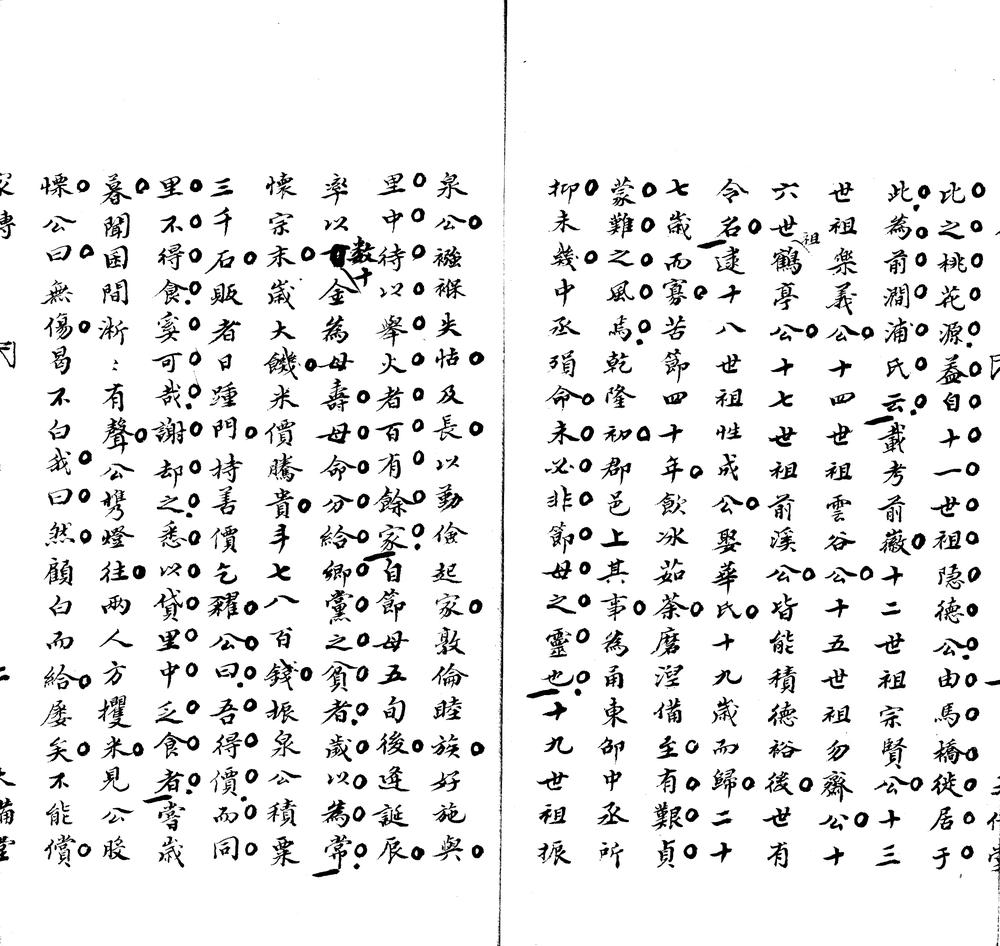 比之桃花源益自十一世祖隱德公由馬橋徙居于
此為前澗浦氏云載考前徽十二世祖宗賢公十三
世祖樂義公十四世祖雲谷公十五世祖勿齋公十
六世祖鶴亭公十七世祖前溪公皆能積德裕後世有
令名逮十八世祖性成公娶華氏十九歲而歸二十
七歲而寡苦節四十年飲冰茹荼磨涅備至有艱貞
蒙難之風焉乾隆初郡邑上其事為甬東邵中丞所
抑未幾中丞殞命未必非節母之靈也十九世祖振
泉公襁褓失怙及長以勤儉起家敦倫睦族好施與
里中待以舉火者百有餘家自節母五旬後逢誕辰
率以數十金為母壽母命分給鄉黨之貧者歲以為常
懷宗末歲大饑米價騰貴斗七八百錢振泉公積粟
三千石販者日踵門持善價乞糴公曰吾得價而同
里不得食奚可哉謝却之悉以貸里中乏食者嘗歲
暮聞囷間淅淅有聲公攜燈往兩人方攫米見公股
慄公曰無傷曷不白我曰然顧白而給屢矣不能償